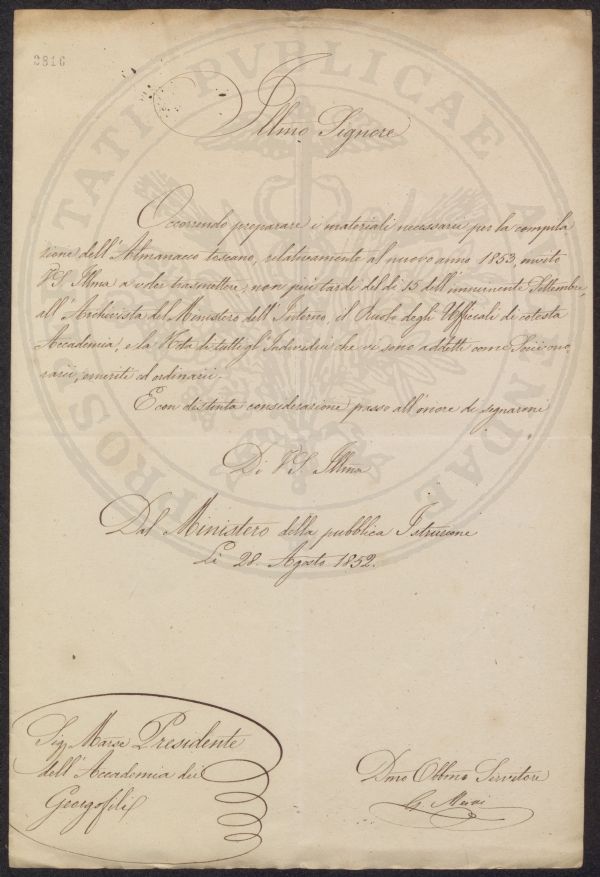 2816
Illmo Signore
Occorrendo preparare i materiali necessarii per la compila
zione dell'Almanacco toscano, relativamente al nuovo anno 1853, invito
VS. Illma a voler trasmettere, non più tardi del dì 15 dell'imminente Settembre,
all'Archivista del Ministero dell'Interno, il Ruolo degli Uffiziali di cotesta
Accademia, e la Nota di tutti gl'Individui che vi sono addetti come Socii ono-
rarii, emeriti ed ordinarii.-
E con distinta considerazione passo all'onore di segnarmi
Di VS. Illma
Dal Ministero della pubblica Istruzione
Li 28. Agosto 1852.
Sigr Marse Presidente
dell'Accademia dei
Georgofili
Dmo Obbmo Servitore
PROSPERITATI PVBLICAE AVGENDAE